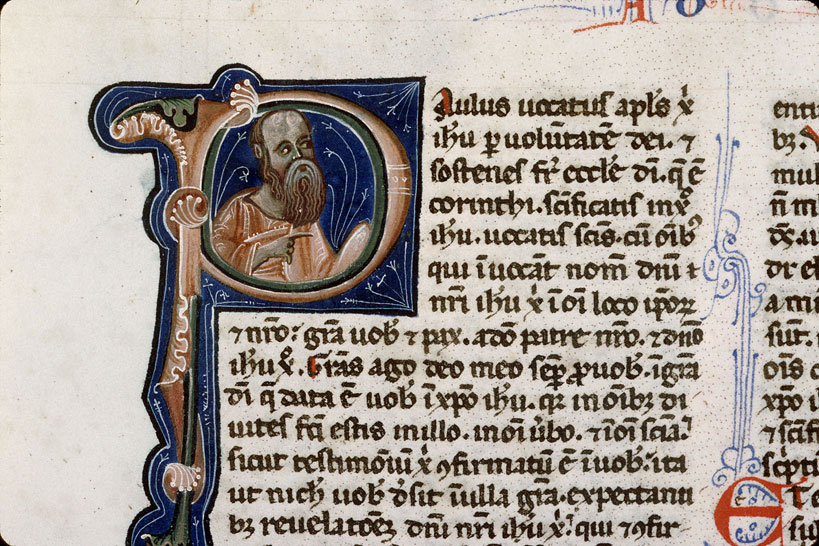 Paulus uocatus apl's x̄
ih'u p uolūtatē dei. ⁊
sostenes fr̄ eccl'e dī. q̄ ē
corinthi. sc̄ificatis in xº
ih'u. uocatis sc̄is. cū oīb'
qui īuocāt nom̄ dn̄i
nr̄i ih'u x̄ ī oī loco ip̄oꝝ
⁊ nr̄o. gr̄a uob' ⁊ pax. a dō patre nr̄o. ⁊ dn̄o
ih'u x̄. Gr̄as ago deo meo semp̄ ꝓ uob'. ī gr̄a
dī q̄ data ē uob' ī xp̄o ih'u. qr in oīb; di
uites fc̄i estis in illo. in oī ūbo. ⁊ ī oī sciā.
sicut testimōiū x̄ ꝯfirmatū ē ī uob'. ita
ut nich' uob' d'sit ī ulla gr̄a. expectantı
b; reuelatōeꝫ dn̄i nr̄i ih'u x̄. qui ⁊ ꝯfir